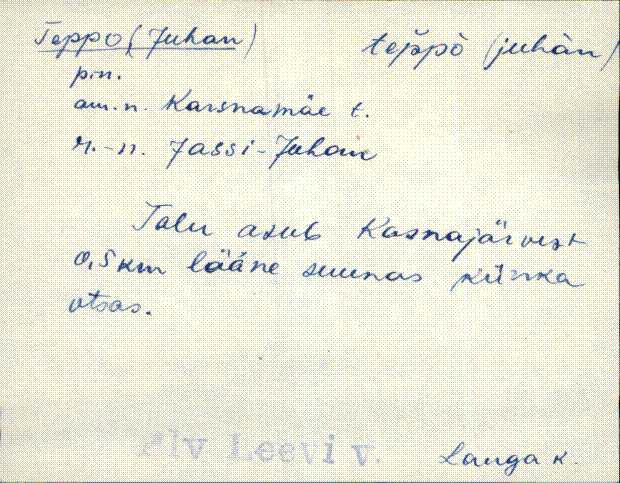 Teppo (Juhan) teppò (juhàn)
pin.
am.n. Karsnamäe t.
r.-n. Jassi-Juhan
Talu asub Kasnajärvest
0,5 km lääne suunas künka
otsas.
Leevi v.
Lauga k.